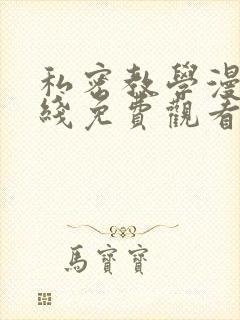 私密教學漫
綫免費觀看
馬寶寶